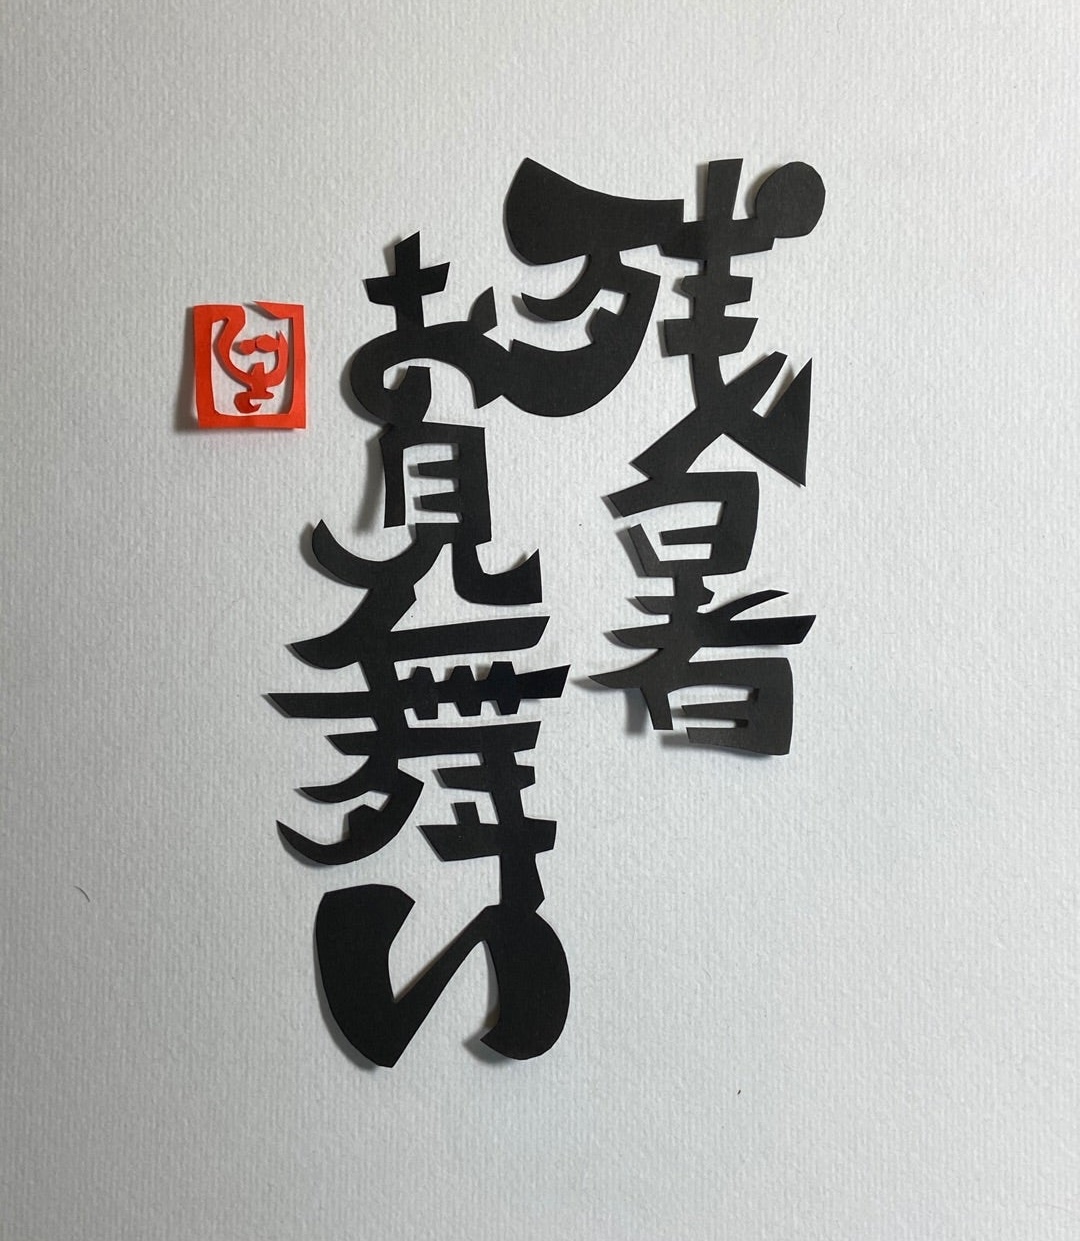 残暑
お見舞い